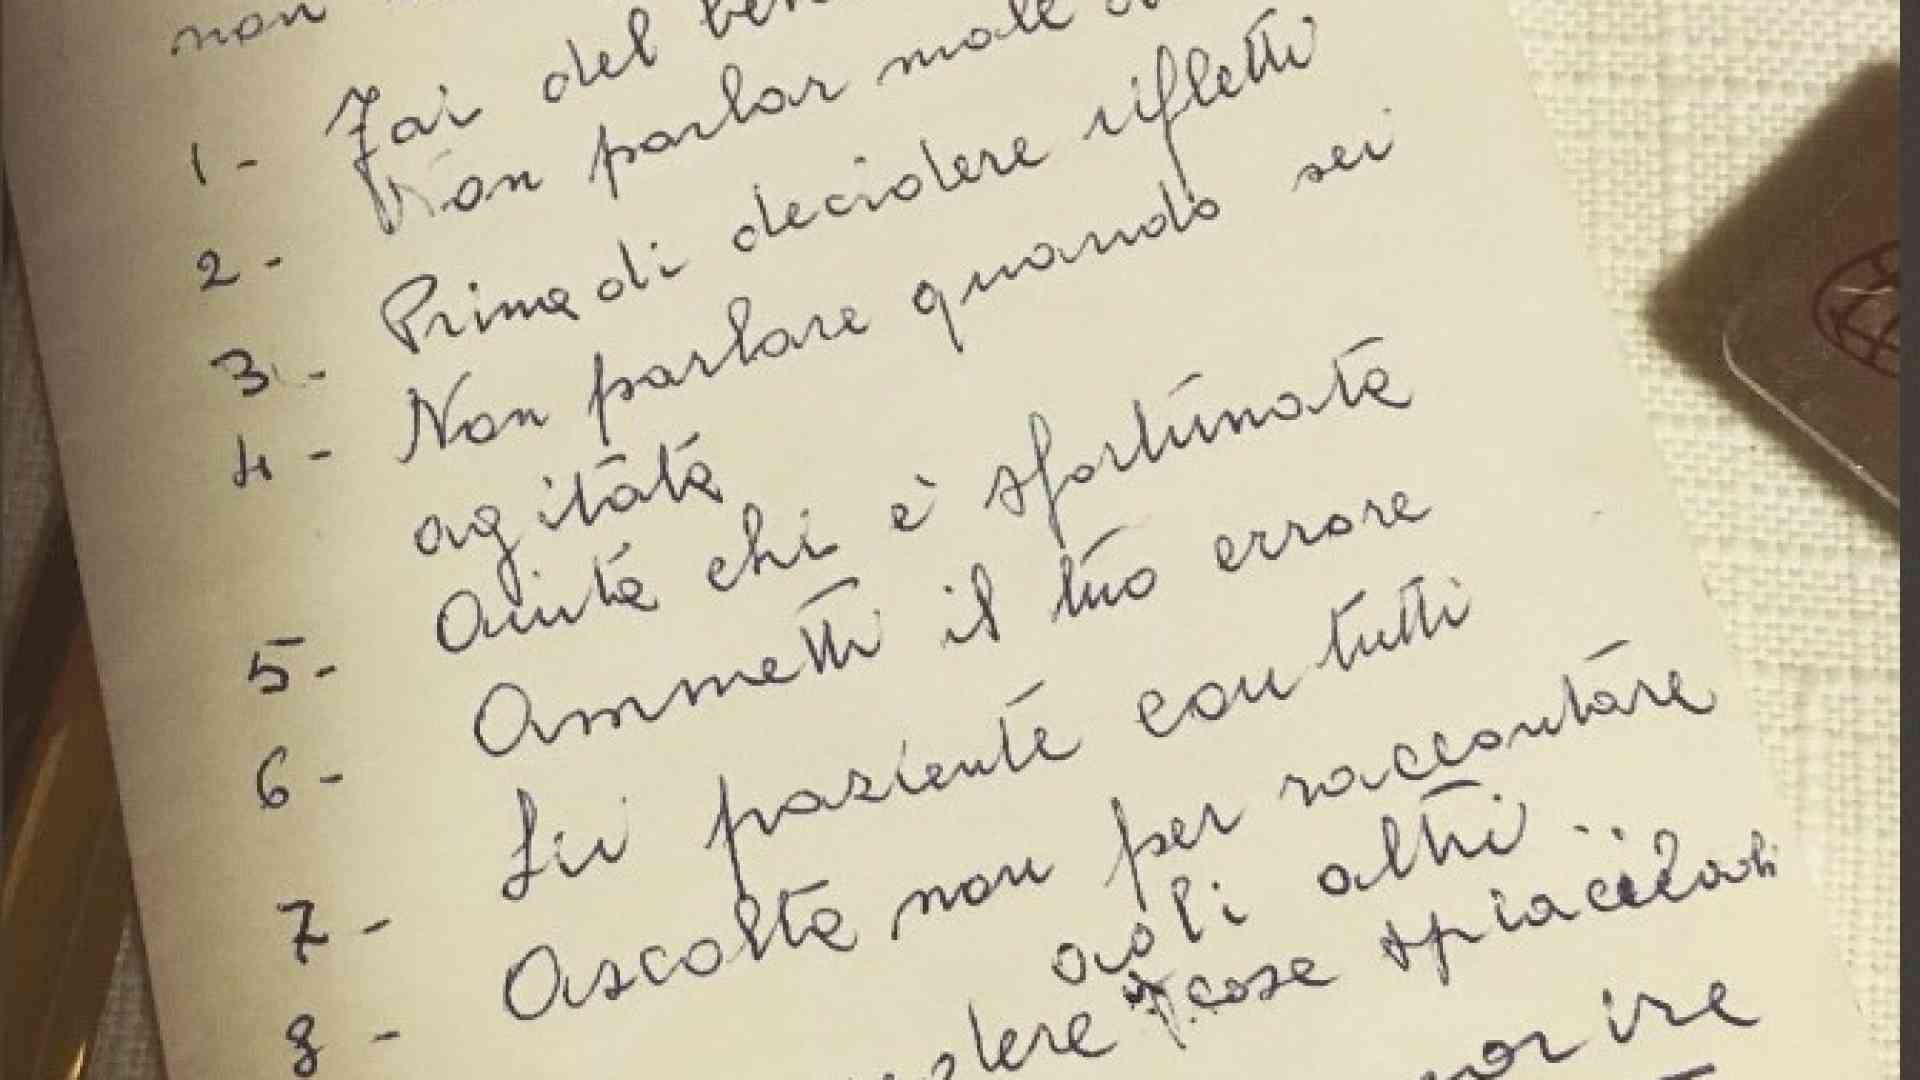 non
1- Fai del
2- Non parlar male
3- Prima di decidere rifletti
4- Non parlare quando sei
agitata
5- Aiuta chi è sfortunata
6- Ammetti il tuo errore
7- Sii paziente con tutti
8- Ascolta non per raccontare
agli altri
cose spiacevoli